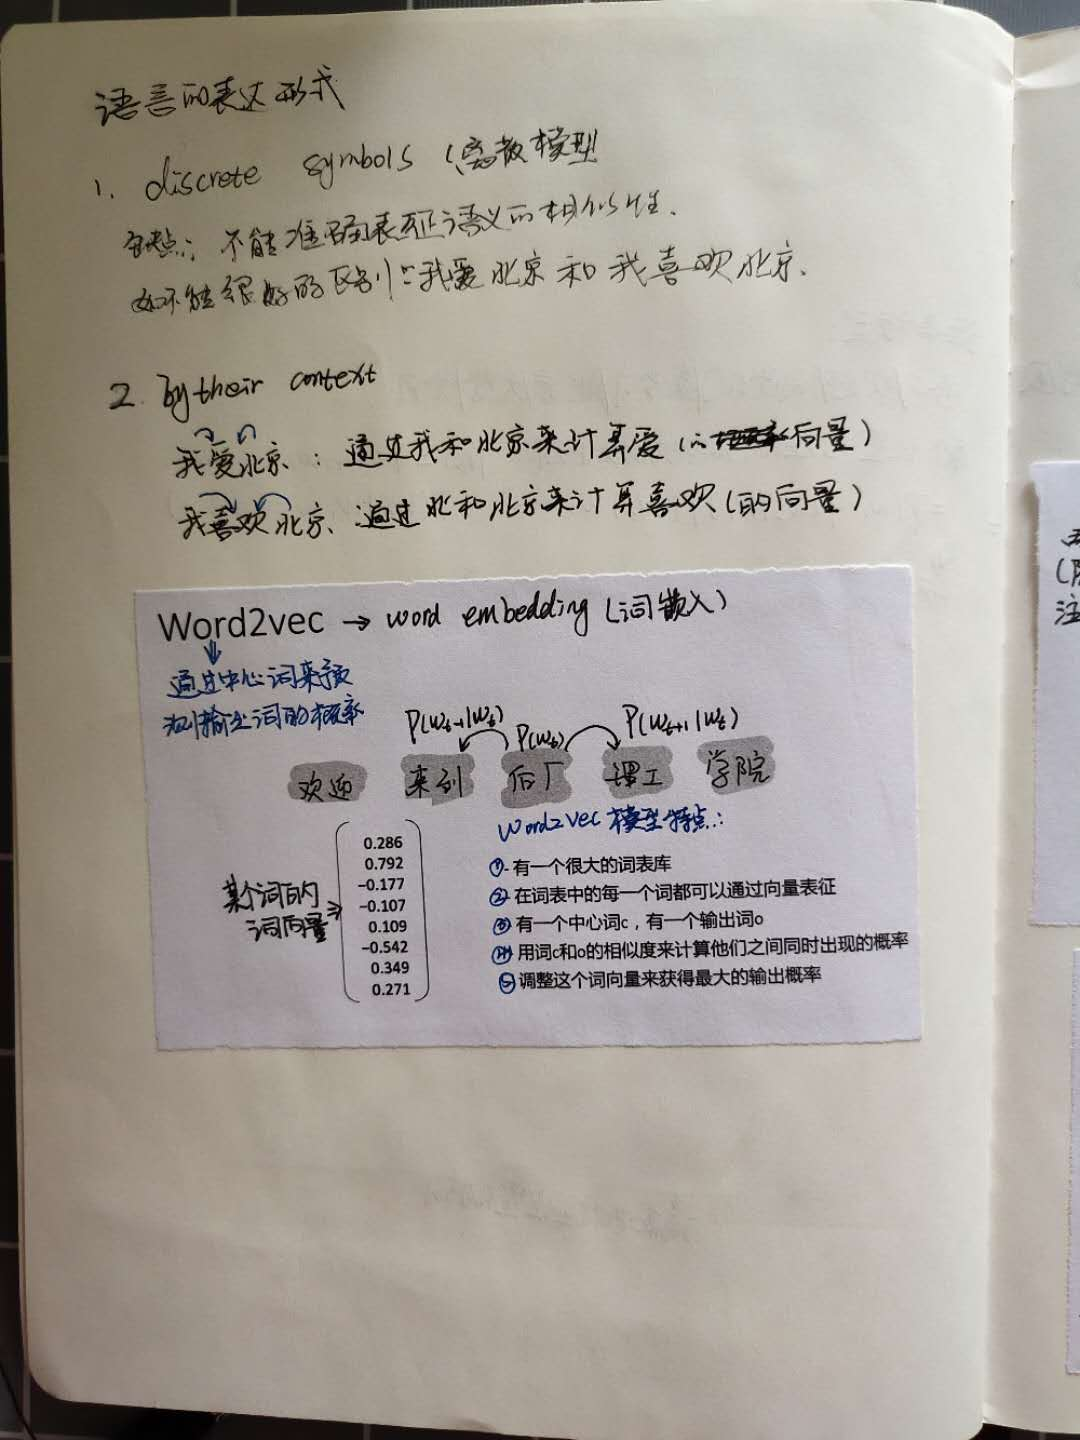 语言的表达形式
1. discrete symbols (离散模型
缺点: 不能准确表征语义的相似性.
如不能很好的区别:我爱北京和我喜欢北京.
2. by their context
我爱北京: 通过我和北京来计算爱(的向量)
我喜欢北京. 通过我和北京来计算喜欢(的向量)
Word2vec → word embedding (词嵌入)
通过中心词来预
测输出词的概率
P(Wt-1|Wt) P(Wt) P(Wt+1|Wt)
欢迎 来到 后厂 理工 学院
Word2vec 模型特点:
某个词的
词向量⇒
0.286
0.792
−0.177
−0.107
0.109
−0.542
0.349
0.271
① 有一个很大的词表库
② 在词表中的每一个词都可以通过向量表征
③ 有一个中心词c，有一个输出词o
④ 用词c和o的相似度来计算他们之间同时出现的概率
⑤ 调整这个词向量来获得最大的输出概率
注